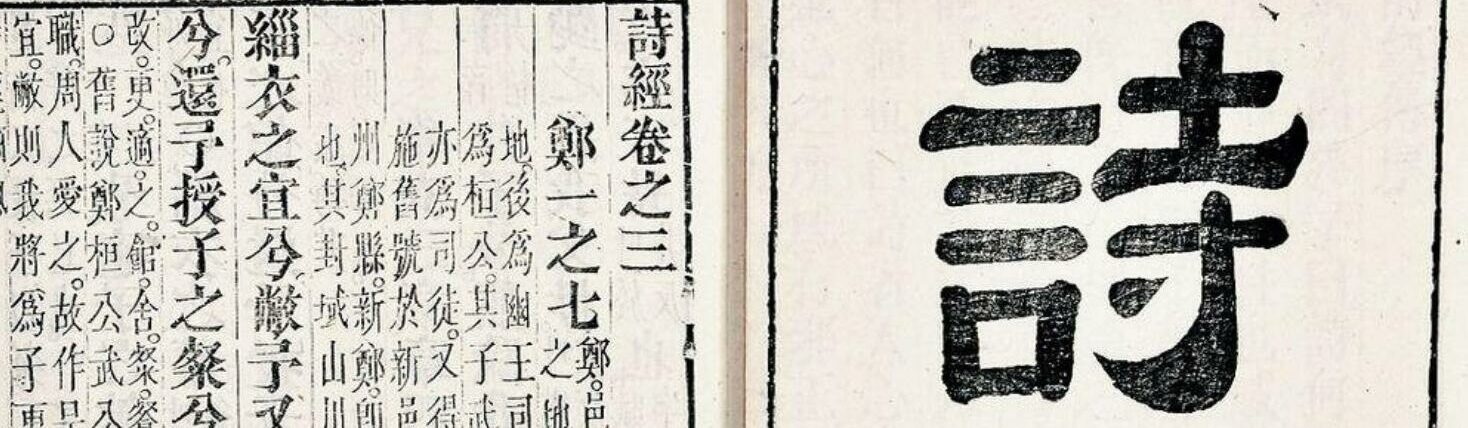 詩
詩經卷之三
鄭一之七鄭。邑
之地
地。後爲幽王司
爲桓公。其子武
亦爲司徒。又得
施舊號於新邑
州鄭縣。新鄭。即
也。其封域山川
緇衣之宜兮。敝予又
兮。還予授子之粲兮
改。更。適。之。館。舍。粲。餐
○舊說鄭桓公武公
職。周人愛之。故作是
宜。敝則我將爲子更